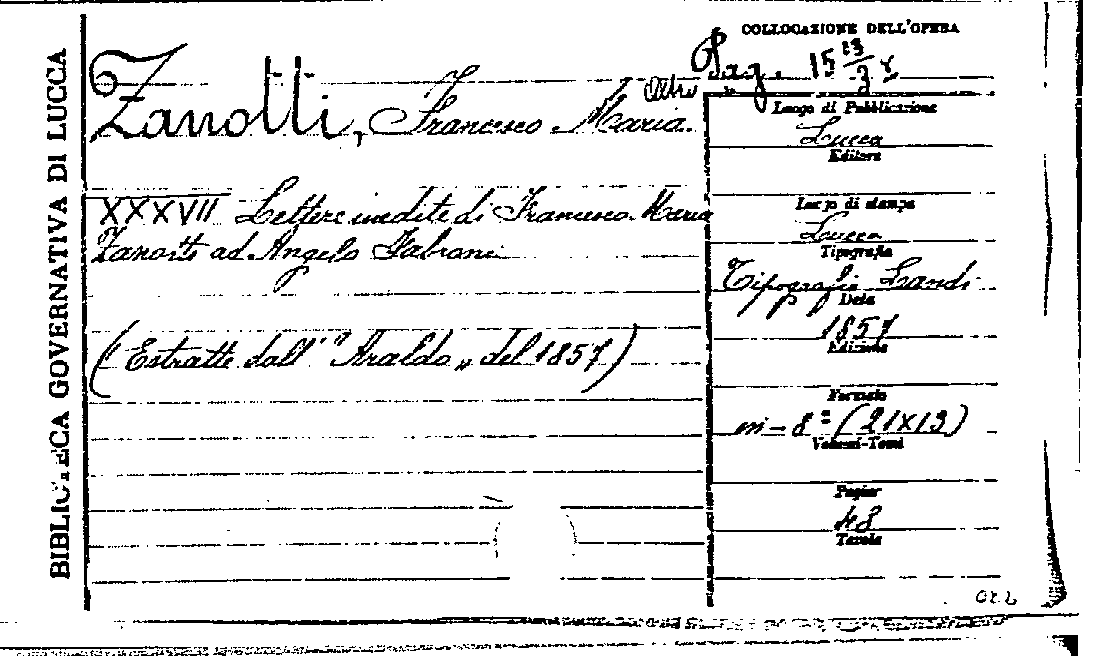 BIBLIOTECA GOVERNATIVA DI LUCCA
COLLOCAZIONE DELL'OPERA
Zanotti, Francesco Maria.
XXXVII Lettere inedite di Francesco Maria
Zanotti ad Angelo Fabroni
(Estratte dall' "Araldo" del 1857)
Luogo di Pubblicazione
Lucca
Editore
Luogo di stampa
Lucca
Tipografia
Tipografia Landi
Data
1857
Edizione
Formato
in-8º (21x13)
Volumi-Tomi
Pagine
48
Tavole